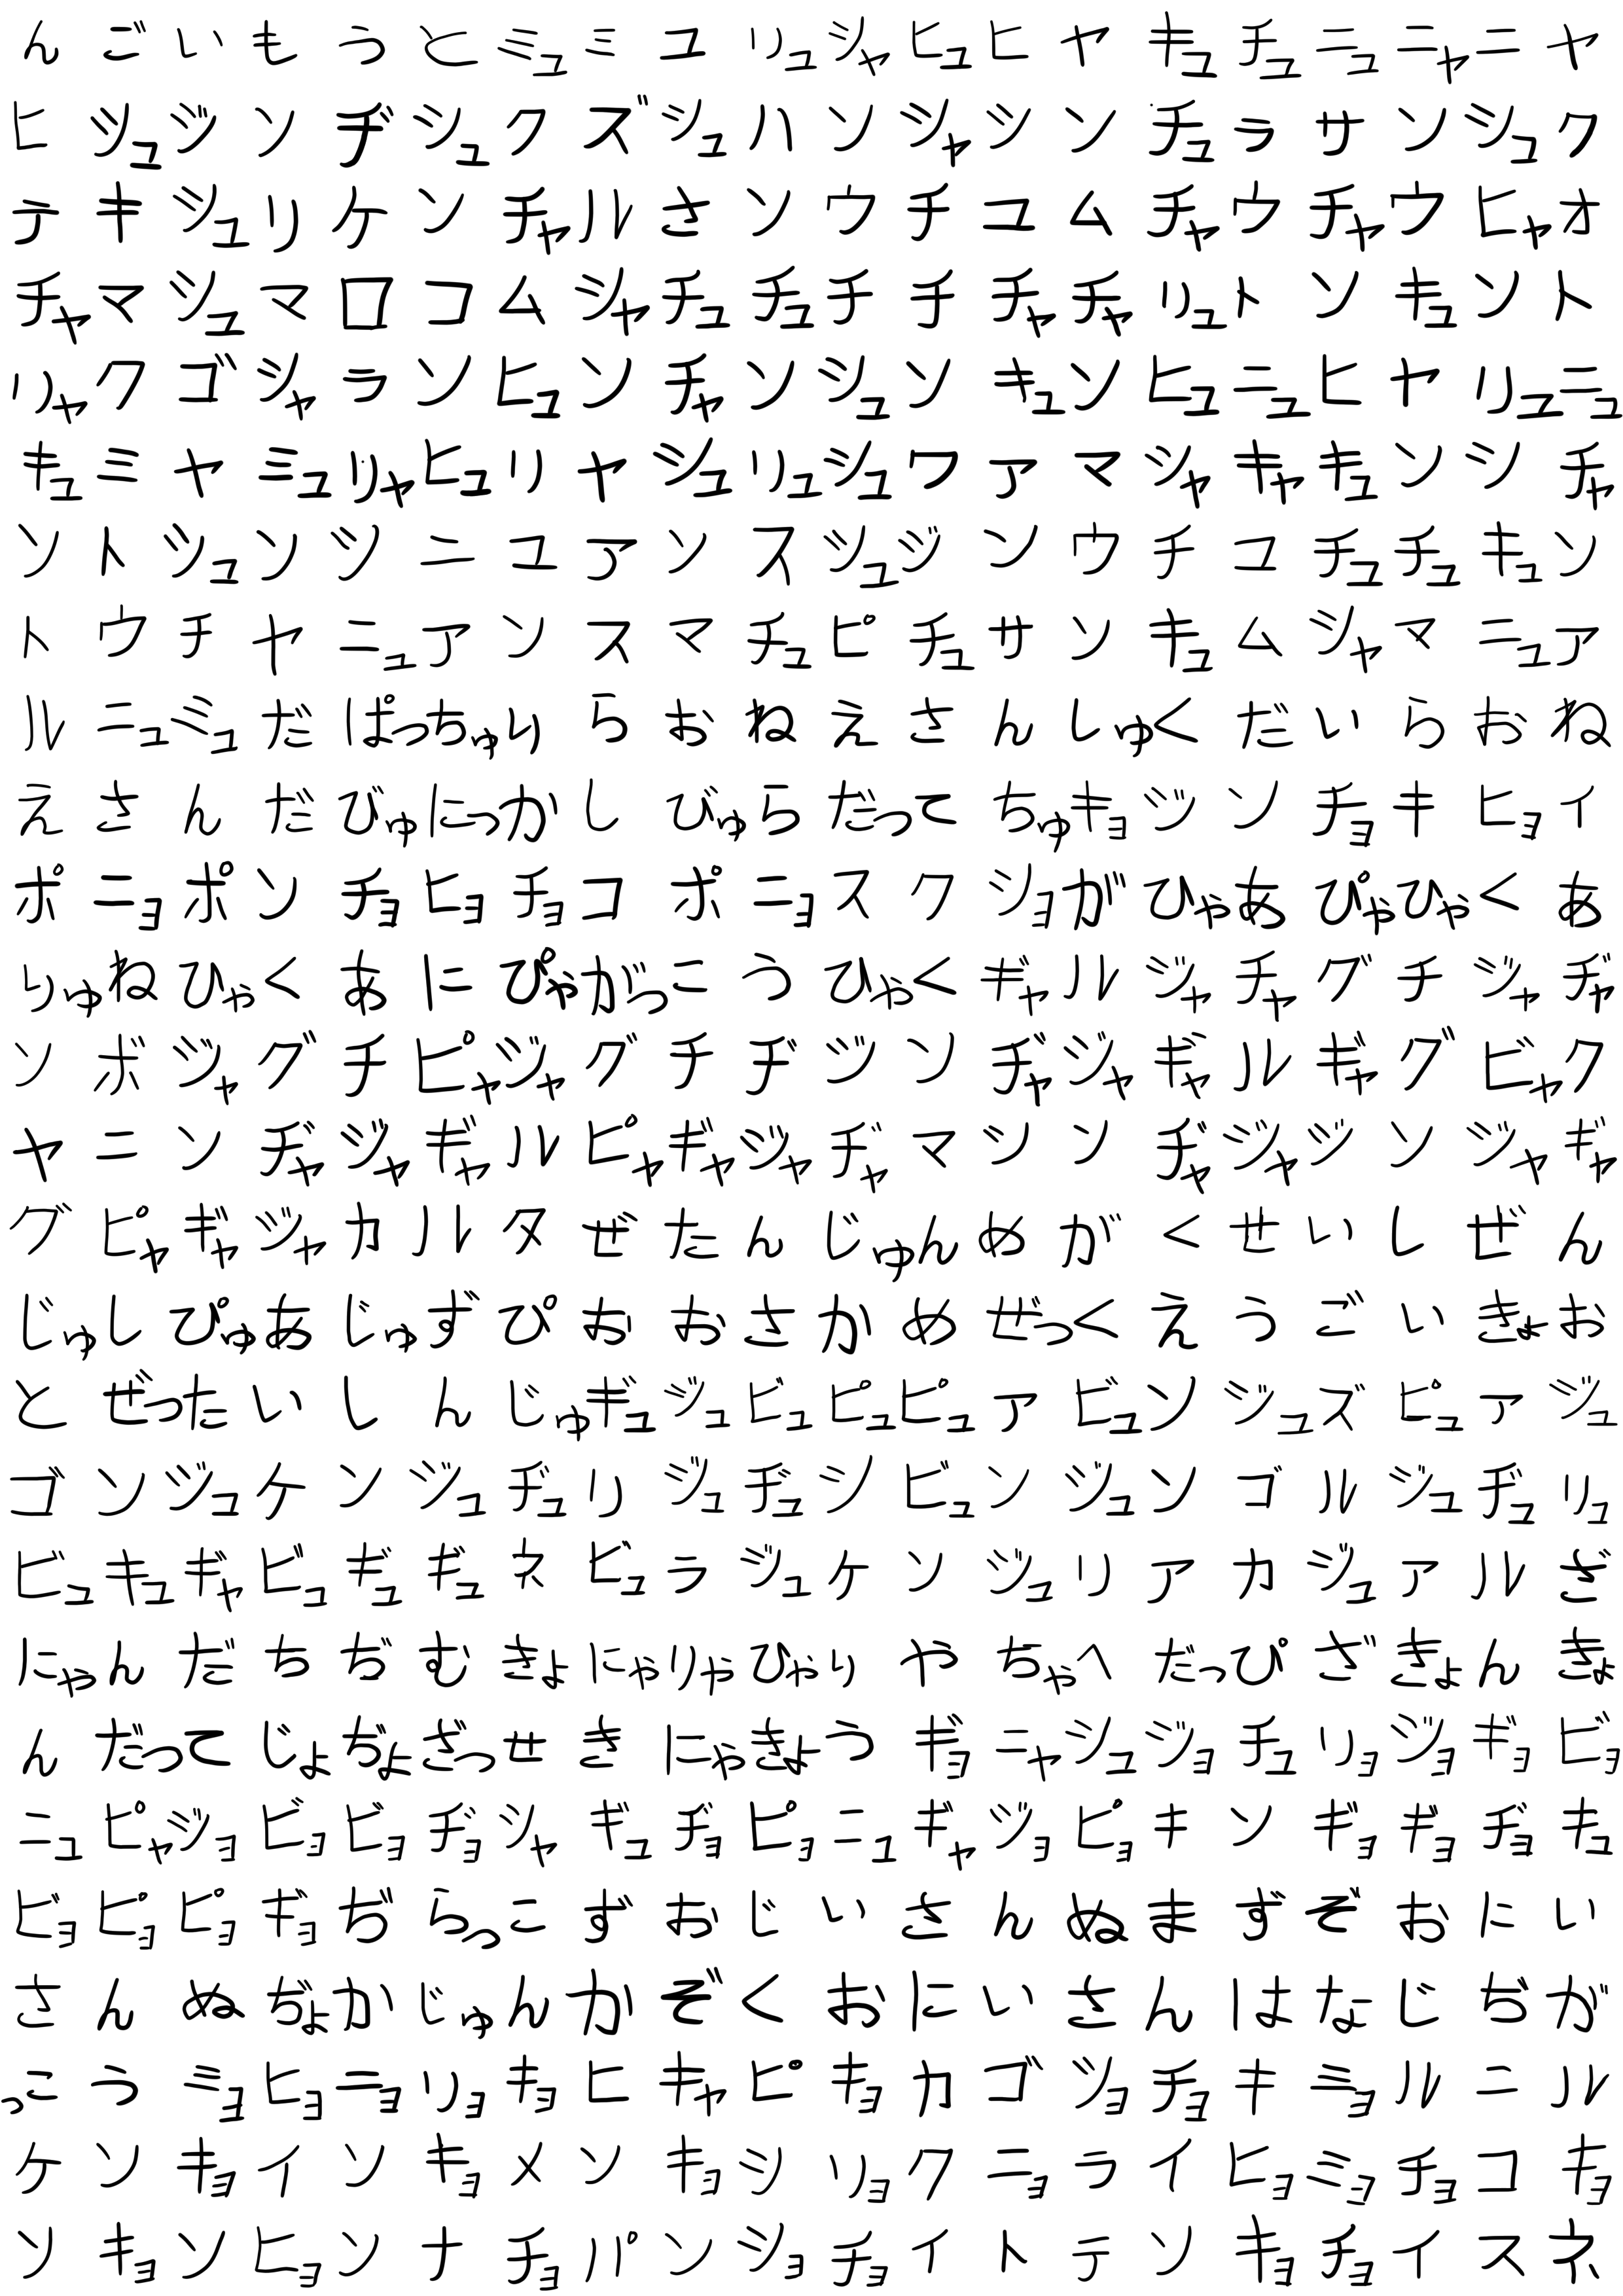 んごいもうとミュミユリュシャヒュヒヤキュチュニュニャニヤ
ヒツュヅソヂシュクズシュハンシャシンチュラサンシュク
テキジュリケンチャルさソウチユムチャウチャウヒャオ
チャマジュマロコムシャチュチュチチチャチャリュトソキュント
リャクゴシャランヒュンチャンシュンキュンヒュニュヒヤリュニュ
キュミヤミュリャヒュリヤシュリュシュワアマシャキャキュンシチャ
ソトツュンツニユアンスツュヅンウチユチュチュキュン
トウチヤニュアンスマチュピチュサンキュムシャマニュア
ルニュミュだぱっちゅりらおねえさんしゅくだいらおね
えさんだびゅにっかしびゅらだってちゅキョツンチョキヒョイ
ポニョポンチョヒョチョコポニョスクショがひゃあぴゃひゃくあ
りゅねひゃくあにぴゃがっこうひゃくギャルジャチャグチジャヂャ
ソボヅャグチピャヅャグチヂツンヂャジャギャルギャグビャク
ヤニンヂャジャギャルピャギャヅャヂャマシンヂャジャヅンヅャギャ
グピャギャヅャカルタぜたんじゅんめがくせいしぜん
じゅしぴゅあじゅずぴおおさかめぜっくえうごいきょお
とぜったいしんじゅギュジュビュピュピュアビュンジュズピュアジュ
ゴンヅュケンヅュヂュリジュヂュシビュンヅュンゴルジュヂュリュ
ビュキュギャビュギュギュネビュラジュケンヅュリアカジュアルざ
にゃんだちぢむきょにゃりゃひゃりやちゃへだっぴざきょんきょ
んだってじょぢょざっせきにゃきょうギョニャシュジョチュリョジョギョビョ
ニュピャジョビョビョヂョシャギュヂョピョニュギャヅョピョキンギョギョヂョキュ
ビョピョピョギョぢらっこずおじいさんぬまずぞおにい
さんぬぢょかじゅんかぞくおにいさんはなじぢが
っこうミョヒョニョリョキョヒキャピキョカゴヅョチョキミョルニル
ケンキョインキョメンキョシリョクニョライヒョミョチョコキョ
ソキョンヒョンナチョパンショチョイトテンキョチョイスネ